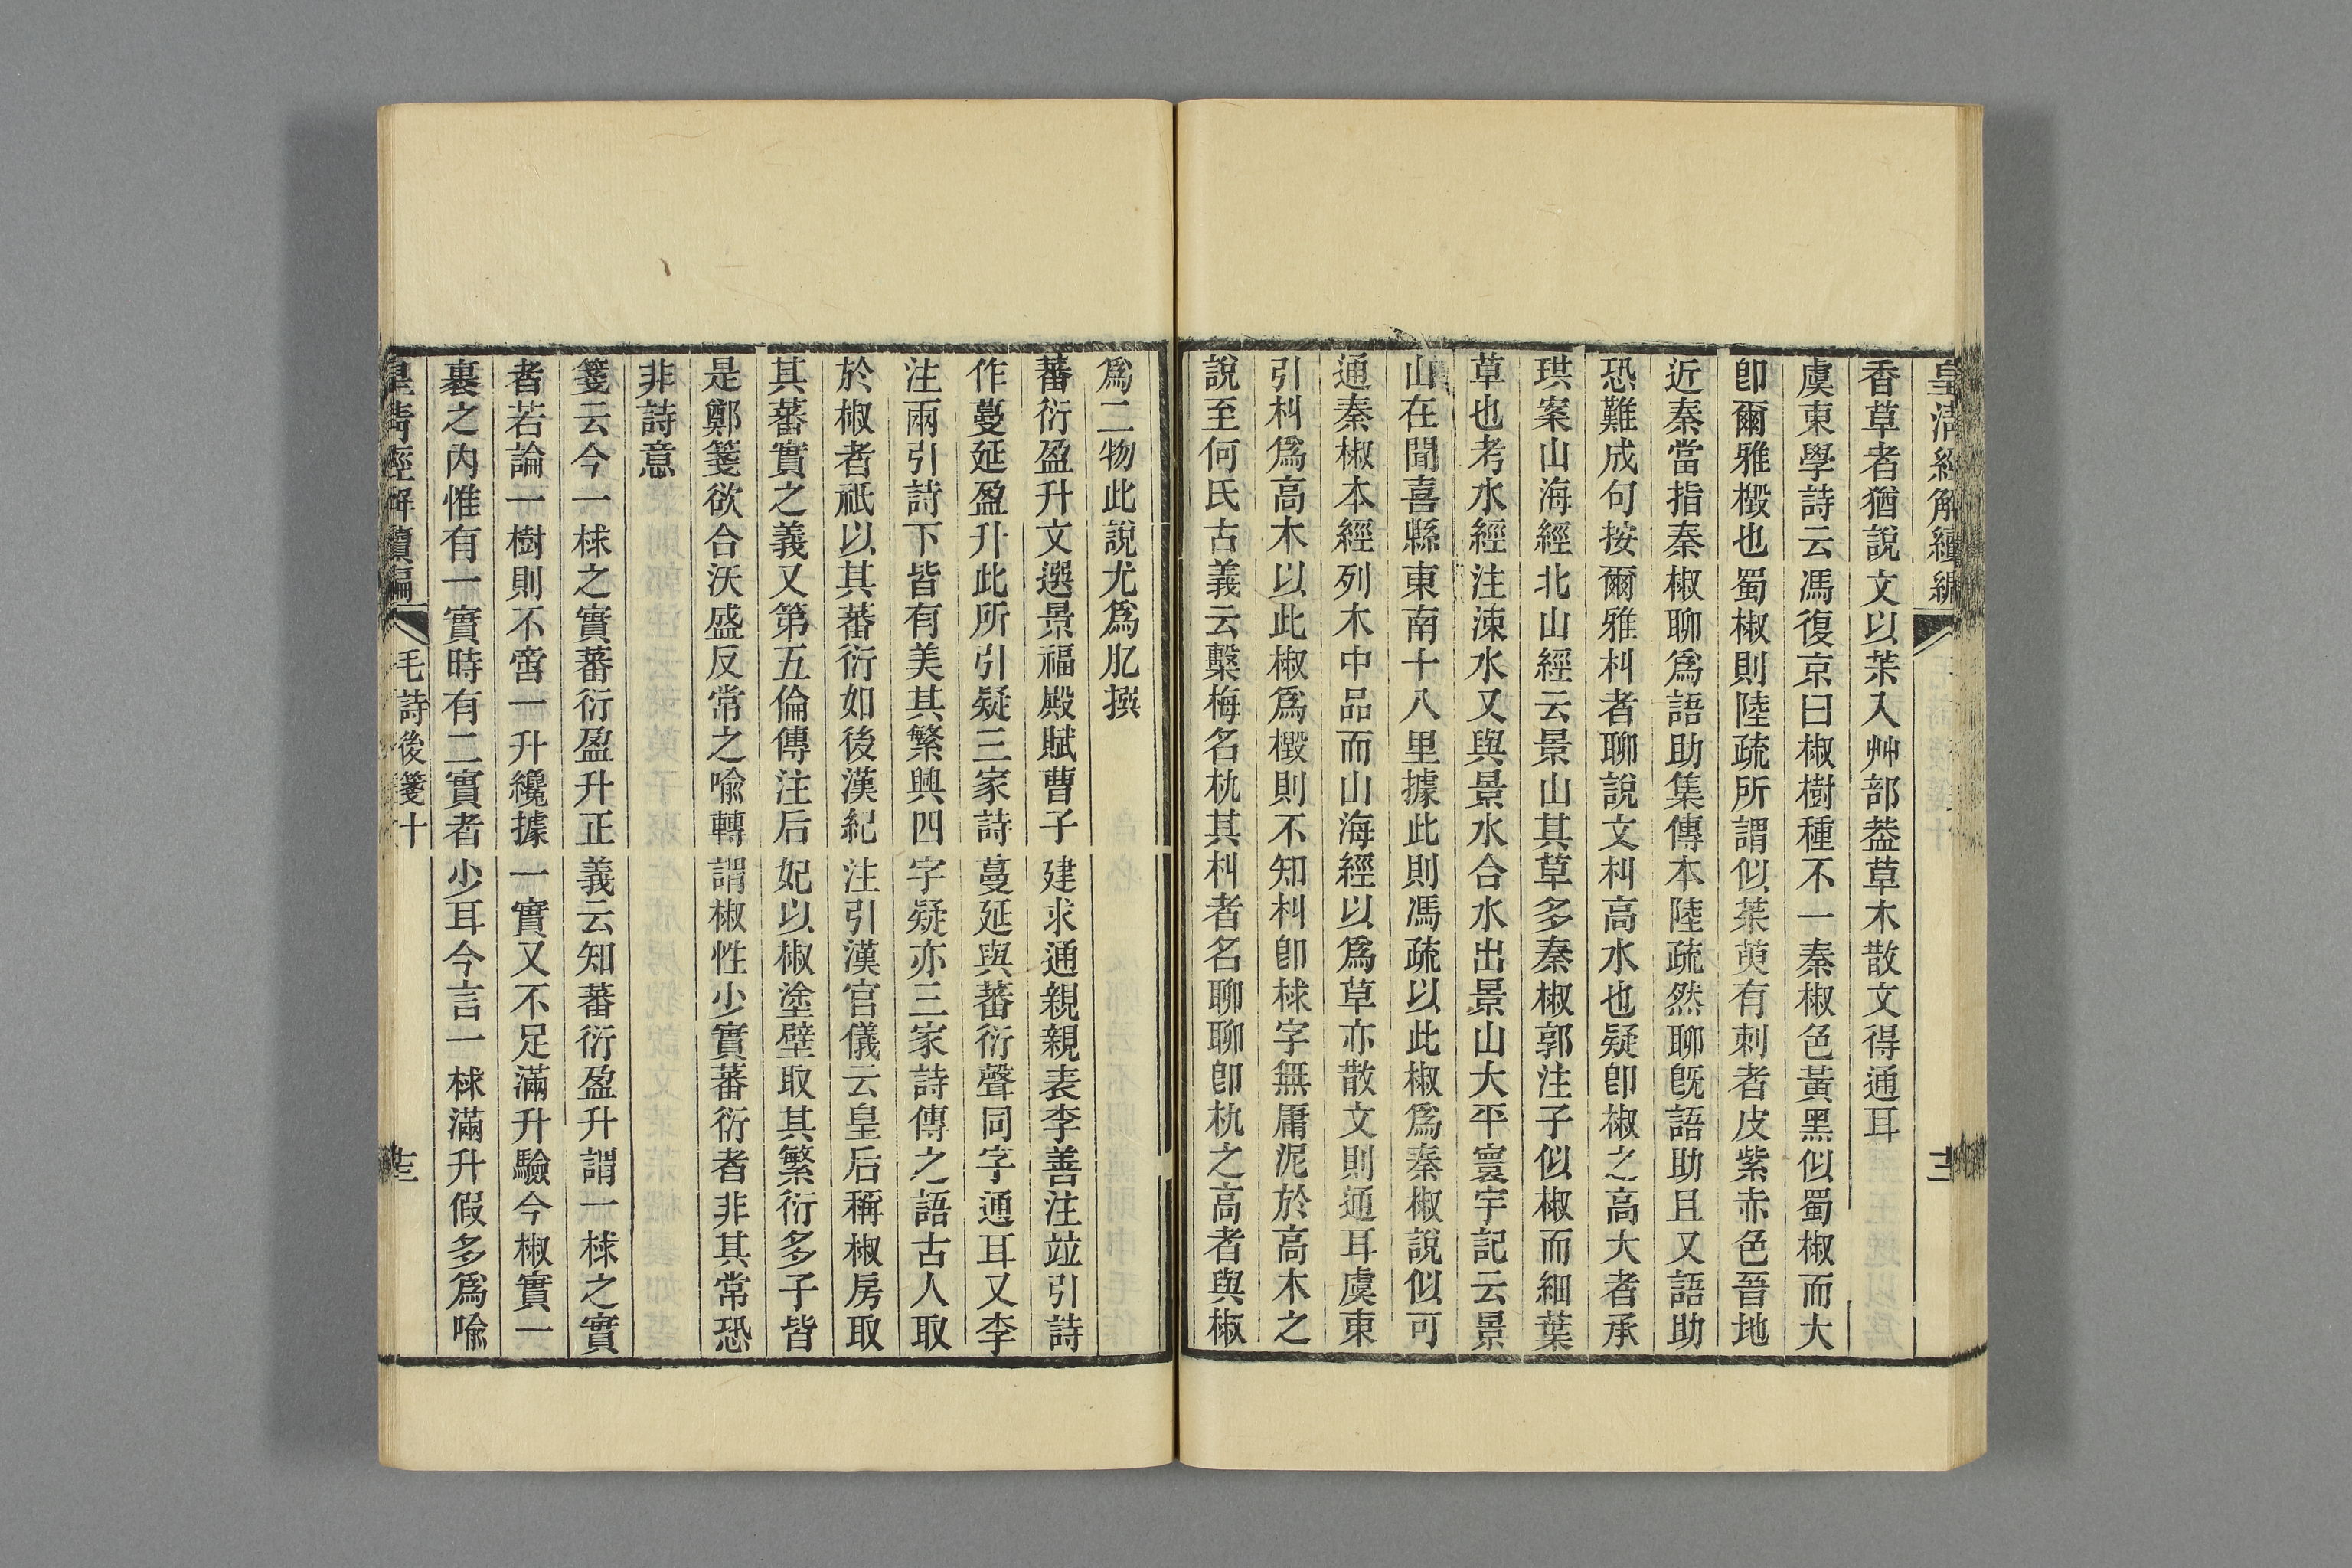 皇清經解續編
香草者猶說文以茮入艸部葢草木散文得通耳
虞東學詩云馮復京曰椒樹種不一秦椒色黃黑似蜀椒而大
卽爾雅檓也蜀椒則陸疏所謂似茱萸有刺者皮紫赤色晉地
近秦當指秦椒聊爲語助集傳本陸疏然聊旣語助且又語助
恐難成句按爾雅朻者聊說文朻高水也疑卽椒之高大者承
珙案山海經北山經云景山其草多秦椒郭注子似椒而細葉
草也考水經注涑水又與景水合水出景山大平寰宇記云景
山在聞喜縣東南十八里據此則馮疏以此椒爲秦椒說似可
通秦椒本經列木中品而山海經以爲草亦散文則通耳虞東
引朻爲高木以此椒爲檓則不知朻卽梂字無庸泥於高木之
說至何氏古義云檕梅名朹其朻者名聊聊卽朹之高者與椒
爲二物此說尤爲肊撰
蕃衍盈升文選景福殿賦曹子建求通親親表李善注竝引詩
作蔓延盈升此所引疑三家詩蔓延與蕃衍聲同字通耳又李
注兩引詩下皆有美其繁興四字疑亦三家詩傳之語古人取
於椒者祇以其蕃衍如後漢紀注引漢官儀云皇后稱椒房取
其蕃實之義又第五倫傳注后妃以椒塗壁取其繁衍多子皆
是鄭箋欲合沃盛反常之喻轉謂椒性少實蕃衍者非其常恐
非詩意
箋云今一梂之實蕃衍盈升正義云知蕃衍盈升謂一梂之實
者若論一樹則不啻一升纔據一實又不足滿升驗今椒實一
裹之內惟有一實時有二實者少耳今言一梂滿升假多爲喻
皇清經解續編
毛詩後箋十